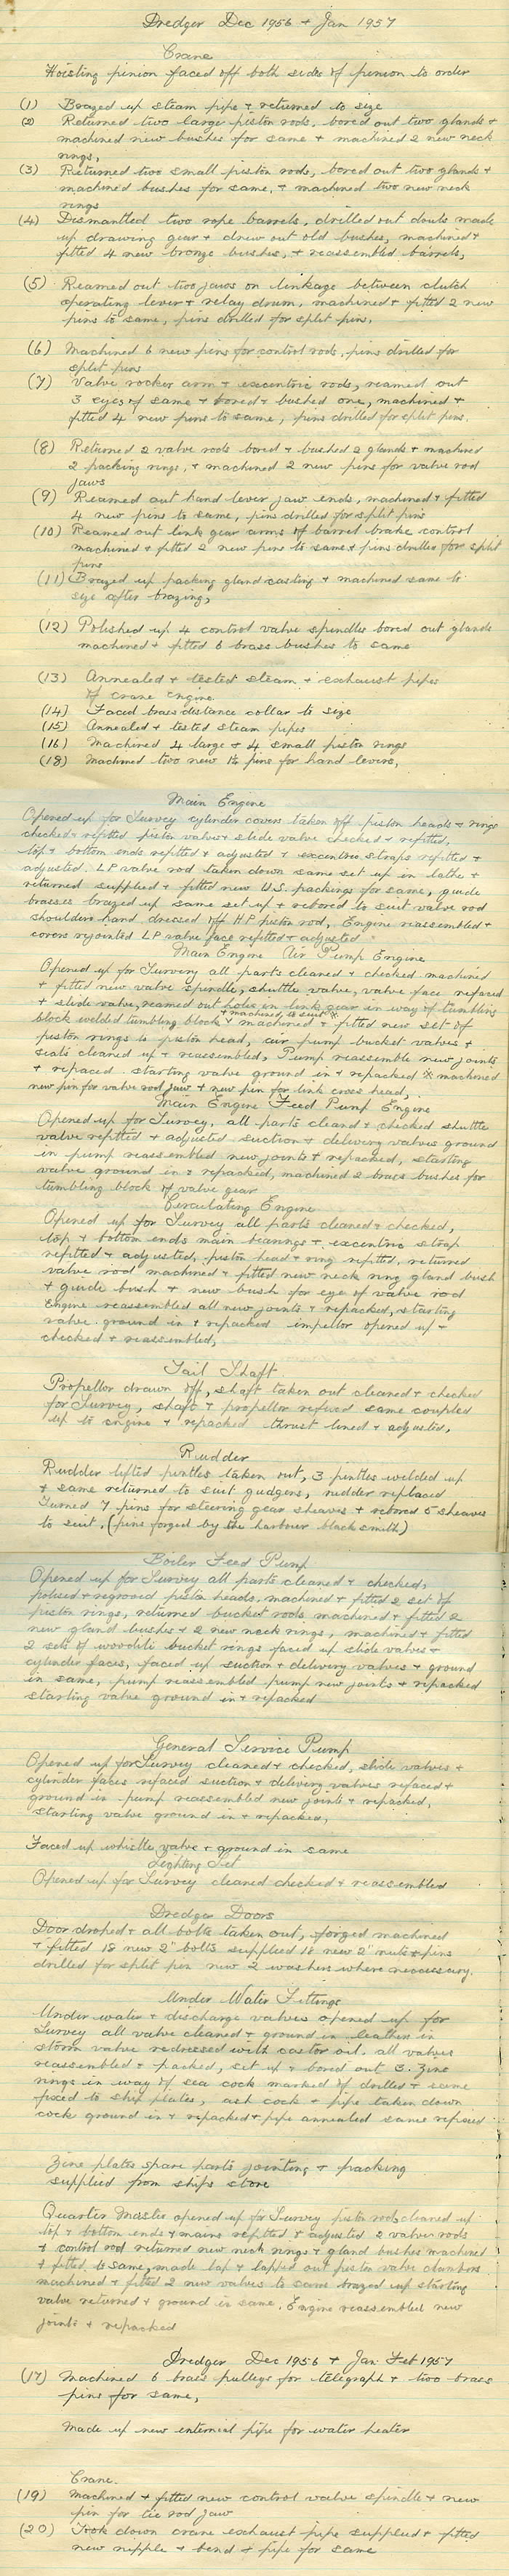 Dredger Dec 1956 + Jan 1957
Crane
Hoisting pinion faced off both sides of pinion to order
(1) Brazed up steam pipe + returned to size
(2) Returned two large piston rods, bored out two glands +
machined new bushes for same + machined 2 new neck
rings,
(3) Returned two small piston rods, bored out two glands +
machined bushes for same, + machined two new neck
rings
(4) Dismantled two rope barrels, drilled out douls made
up drawing gear + drew out old bushes, machined +
fitted 4 new bronze bushes, + reassembled barrels,
(5) Reamed out two jaws on linkage between clutch
operating lever + relay drum, machined + fitted 2 new
pins to same, pins drilled for split pins,
(6) Machined 6 new pins for control rods, pins drilled for
split pins
(7) Valve rocker arm + excentric rods, reamed out
3 eyes of same + bored + bushed one, machined +
fitted 4 new pins to same, pins drilled for split pins.
(8) Returned 2 valve rods bored + bushed 2 glands + machined
2 packing rings, + machined 2 new pins for valve rod
jaws
(9) Reamed out hand lever jaw ends, machined + fitted
4 new pins to same, pins drilled for split pins
(10) Reamed out link gear arms of barrel brake control
machined + fitted 2 new pins to same + pins drilled for split
pins
(11) Brazed up packing gland casting + machined same to
size after brazing,
(12) Polished up 4 control valve spindles bored out glands
machined + fitted 6 brass bushes to same
(13) Annealed + tested steam + exhaust pipes
of crane engine
(14) Faced brass distance collar to size
(15) Annealed + tested steam pipes
(16) Machined 4 large + 4 small piston rings
(18) Machined two new pins for hand levers,
Main Engine
Opened up for Survey cylinder covers taken off piston heads + rings
checked + refitted piston valve + slide valve checked + refitted,
top + bottom ends refitted + adjusted + excentric straps refitted +
adjusted. LP valve rod taken down same set up in lathe +
returned supplied + fitted new U.S. packings for same, guide
brasses brazed up same set up + rebored to suit valve rod
shoulders hand dressed off HP piston rod, Engine reassembled +
covers rejointed LP valve face refitted + adjusted
Main Engine Air Pump Engine
Opened up for Survery all parts cleaned + checked machined
+ fitted new valve spindle, shuttle valve, valve face refaced
+ slide valve, reamed out holes in link gear in way of tumbling
block welded tumbling block + machined to suit + machined + fitted new set of
piston rings to piston head, air pump bucket valves +
seats cleaned up + reassembled, Pump reassemble new joints
+ repaced. starting valve ground in + repacked X machined
new pin for valve rod jaw + new pin for link cross head,
Main Engine Feed Pump Engine
Opened up for Survey, all parts cleaned + checked shuttle
valve refitted + adjusted suction + delivery valves ground
in pump reassembled new joints + repacked, starting
valve ground in + repacked, machined 2 brass bushes for
tumbling block of valve gear
Circulating Engine
Opened up for Survey all parts cleaned + checked,
top + bottom ends main bearings + excentric strap
refitted + adjusted, piston head + ring refitted, returned
valve rod machined + fitted new neck ring gland bush
+ guide bush + new bush for eye of valve rod
Engine reassembled all new joints + repacked, starting
valve ground in + repacked impellor opened up +
checked + reassembled,
Tail Shaft
Propellor drawn off, shaft taken out cleaned + checked
for Survey, shaft + propellor refixed same coupled
up to engine + repacked thrust lined + adjusted,
Rudder
Rudder lifted pintles taken out, 3 pintles welded up
+ same returned to suit gudgens, rudder replaced
Turned 7 pins for steering gear sheaves + rebored 5 sheaves
to suit, (pins forged by the harbour blacksmith)
Boiler Feed Pump
Opened up for Survey all parts cleaned + checked,
polised + regrooved piston heads, machined + fitted 2 set of
piston rings, returned bucket rods machined + fitted 2
new gland bushes + 2 new neck rings, machined + fitted
2 sets of woodite bucket rings faced up slide valves +
cylinder faces, faced up suction + delivery valves + ground
in same, pump reassembled pump new joints + repacked
starting valve ground in + repacked
General Service Pump
Opened up for Survey cleaned + checked, slide valves +
cylinder faces refaced suction + delivery valves refaced +
ground in pump reassembled new joints + repacked,
starting valve ground in + repacked,
Faced up whistle valve + ground in same
Lighting Set
Opened up for Survey cleaned checked + reassembled
Dredger Doors
Door droped + all bolts taken out, forged machined
+ fitted 18 new 2" bolts supplied 18 new 2" nuts + pins
drilled for split pin new 2 washers where neccessary.
Under Water Fittings
Under water + discharge valves opened up for
Survey all valve cleaned + ground in leathers in
storm valve redressed with castor oil, all valves
reassembled + packed, set up + bored out 3. Zinc
rings in way of sea cock marked of drilled + same
fixed to ship plates, ash cock + pipe taken down
cock ground in + repacked + pipe annealed same refixed
Zinc plates spare parts jointing + packing
supplied from ships store
Quarter Master opened up for Survey piston rods cleaned up
top + bottom ends + mains refitted + adjusted 2 valve rods
+ control rod returned new neck rings + gland bushes machined
+ fitted to same, made lap + lapped out piston valve chambers
machined + fitted 2 new valves to same brazed up starting
valve returned + ground in same. Engine reassembled new
joints + repacked
Dredger Dec 1956 + Jan Feb 1957
(17) Machined 6 brass pulleys for telegraph + two brass
pins for same,
Made up new enternial pipe for water heater
Crane.
(19) Machined + fitted new control valve spindle + new
pin for tie rod jaw
(20) Took down crane exhaust pipe supplied + fitted
new nipple + bend + pipe for same